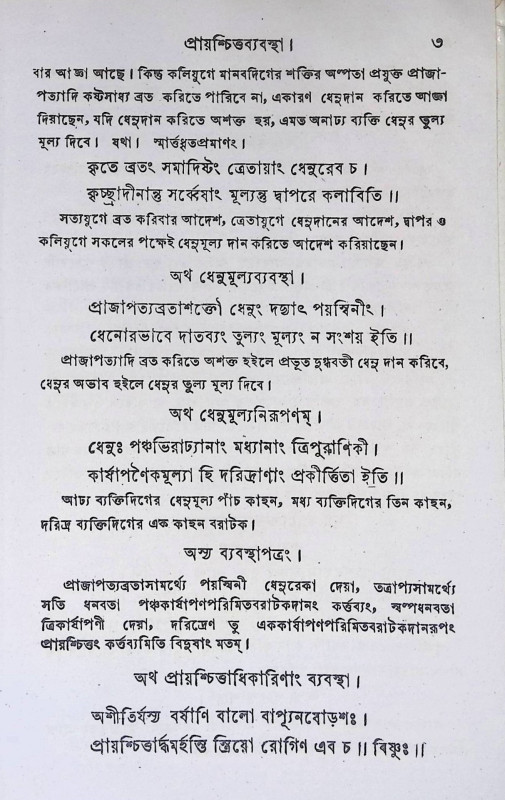 প্রায়শ্চিত্তব্যবস্থা। ৩
বার আজ্ঞা আছে। কিন্তু কলিযুগে মানবদিগের শক্তির অল্পতা প্রযুক্ত প্রাজা-
পত্যাদি কষ্টসাধ্য ব্রত করিতে পারিবে না, একারণ ধেনুদান করিতে আজ্ঞা
দিয়াছেন, যদি ধেনুদান করিতে অশক্ত হয়, এমত অনাঢ্য ব্যক্তি ধেনুর তুল্য
মূল্য দিবে। যথা। স্মার্ত্তধৃতপ্রমাণং।
কৃতে ব্রতং সমাদিষ্টং ত্রেতায়াং ধেনুরেব চ।
কৃচ্ছ্রাদীনান্তু সর্ব্বেষাং মূল্যন্তু দ্বাপরে কলাবিতি॥
সত্যযুগে ব্রত করিবার আদেশ, ত্রেতাযুগে ধেনুদানের আদেশ, দ্বাপর ও
কলিযুগে সকলের পক্ষেই ধেনুমূল্য দান করিতে আদেশ করিয়াছেন।
অথ ধেনুমূল্যব্যবস্থা।
প্রাজাপত্যব্রতাশক্তৌ ধেনুং দদ্যাৎ পয়স্বিনীং।
ধেনোরভাবে দাতব্যং তুল্যং মূল্যং ন সংশয় ইতি॥
প্রাজাপত্যাদি ব্রত করিতে অশক্ত হইলে প্রভূত দুগ্ধবতী ধেনু দান করিবে,
ধেনুর অভাব হইলে ধেনুর তুল্য মূল্য দিবে।
অথ ধেনুমূল্যনিরূপণম্।
ধেনুঃ পঞ্চভিরাঢ্যানাং মধ্যানাং ত্রিপুরাণিকী।
কার্ষাপণৈকমূল্যা হি দরিদ্রাণাং প্রকীর্ত্তিতা ইতি॥
আঢ্য ব্যক্তিদিগের ধেনুমূল্য পাঁচ কাহন, মধ্য ব্যক্তিদিগের তিন কাহন,
দরিদ্র ব্যক্তিদিগের এক কাহন বরাটক।
অস্য ব্যবস্থাপত্রং।
প্রাজাপত্যব্রতাসামর্থ্যে পয়স্বিনী ধেনুরেকা দেয়া, তত্রাপ্যসামর্থ্যে
সতি ধনবতা পঞ্চকার্ষাপণপরিমিতবরাটকদানং কর্ত্তব্যং, স্বল্পধনবতা
ত্রিকার্ষাপণী দেয়া, দরিদ্রেণ তু এককার্ষাপণপরিমিতবরাটকদানরূপং
প্রায়শ্চিত্তং কর্ত্তব্যমিতি বিদুষাং মতম্।
অথ প্রায়শ্চিত্তাধিকারিণাং ব্যবস্থা।
অশীতির্যস্য বর্ষাণি বালো বাপ্যূনষোড়শঃ।
প্রায়শ্চিত্তার্দ্ধমর্হন্তি স্ত্রিয়ো রোগিণ এব চ॥ বিষ্ণুঃ॥